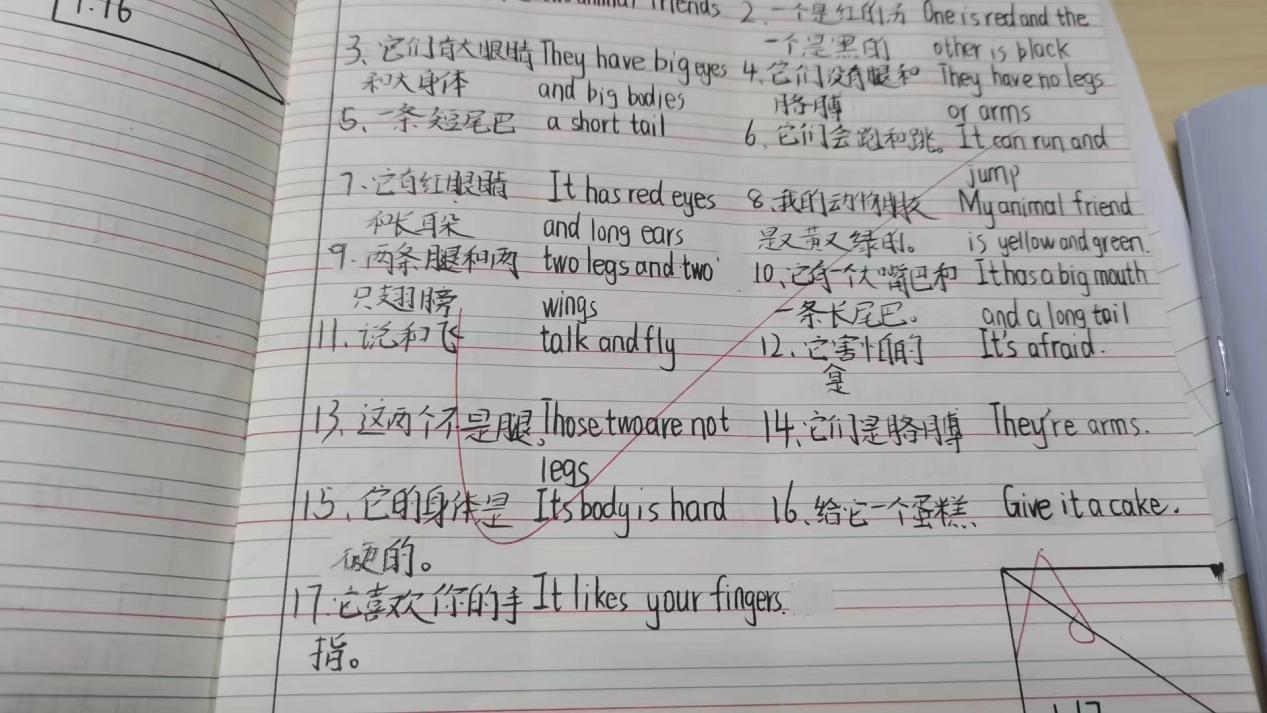 1.16
animal friends 2.一个是红的另 One is red and the
3、它们有大眼睛 They have big eyes 一个是黑的 other is black
和大身体 and big bodies 4、它们没有腿和 They have no legs
胳膊 or arms
5、一条短尾巴 a short tail 6、它们会跑和跳。 It can run and
jump
7、它有红眼睛 It has red eyes 8、我的动物朋友 My animal friend
和长耳朵 and long ears 是又黄又绿的。 is yellow and green.
9、两条腿和两 two legs and two 10、它有一个大嘴巴和 It has a big mouth
只翅膀 wings 一条长尾巴. and a long tail
11、说和飞 talk and fly 12、它害怕的 It's afraid.
13、这两个不是腿, Those two are not 14、它们是胳膊 They're arms.
legs
15、它的身体是 Its body is hard 16、给它一个蛋糕. Give it a cake.
硬的。
17.它喜欢你的手 It likes your fingers.
指。